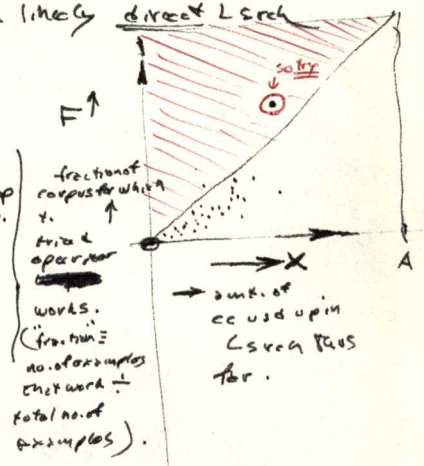 likely direct Lsrch
so try
F
fraction of
corpus for which
t.
tried
operator
works.
("fraction" ≡
no. of examples
that work ÷
total no. of
examples).
X
A
amt. of
cc used up in
Lsrch thus
far.